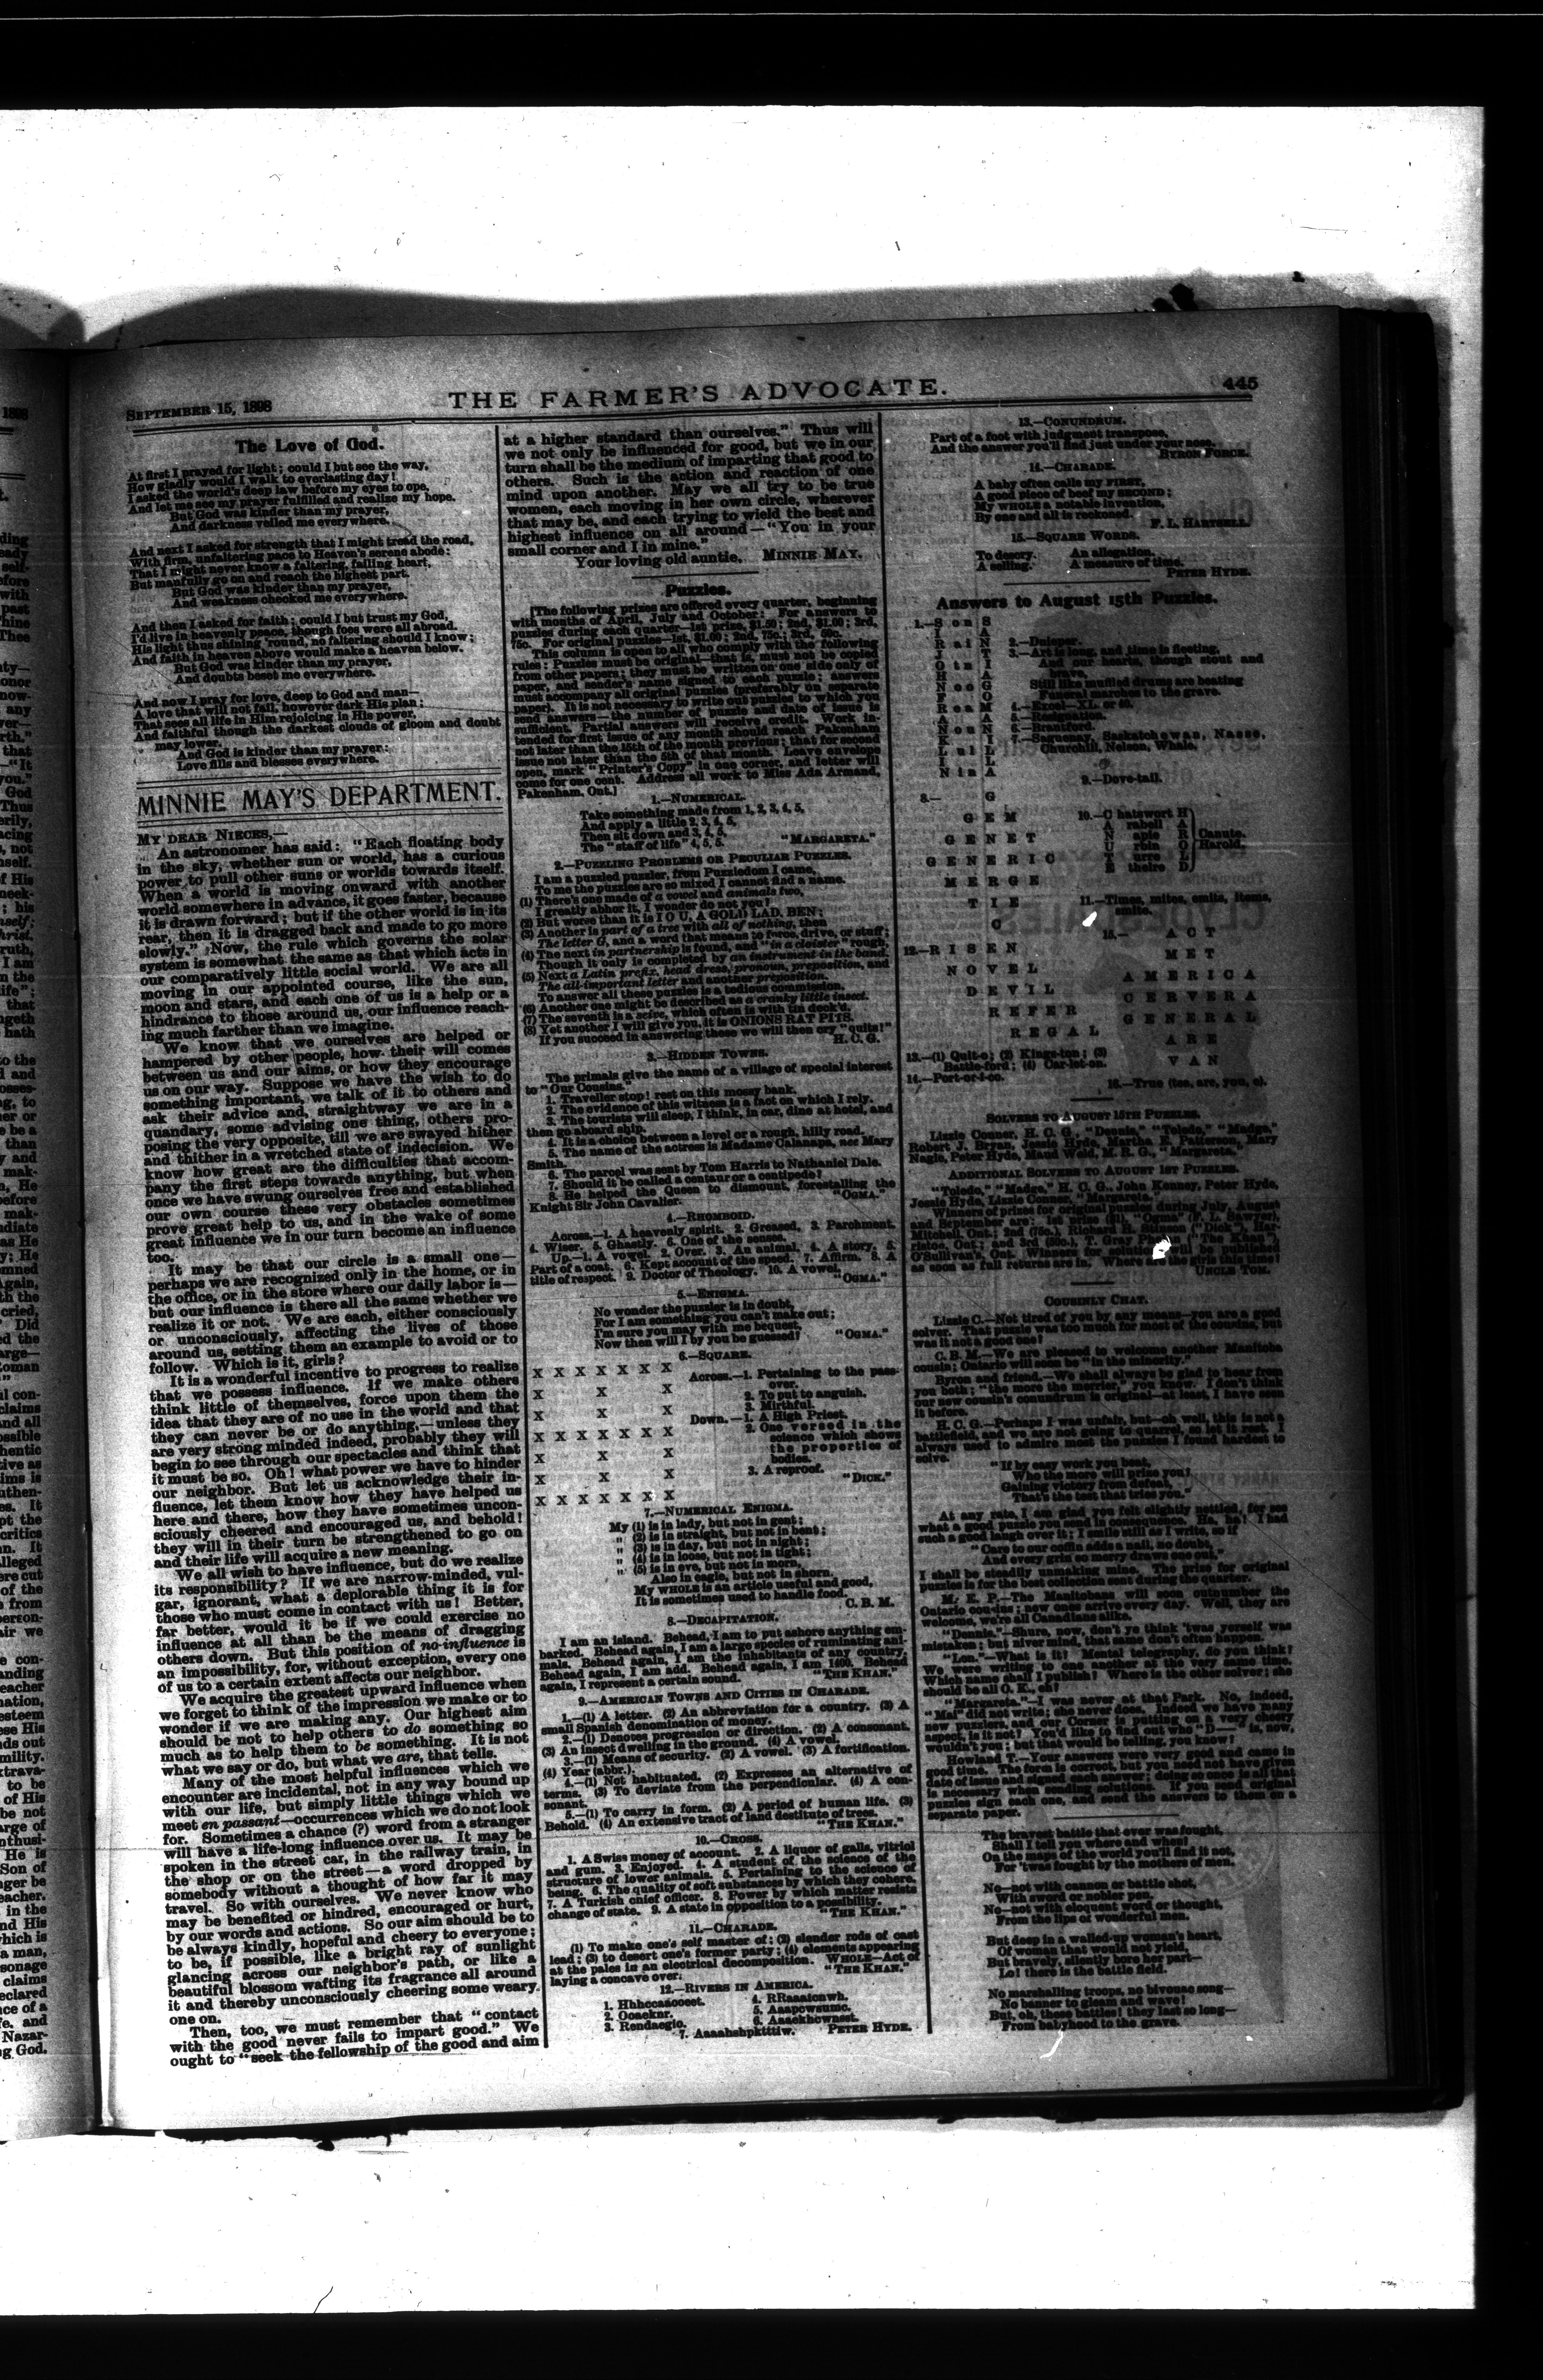 SEPTEMBER 15, 1898
THE FARMER'S ADVOCATE.
445
The Love of God.
At first I prayed for light; could I but see the way,
How gladly would I walk to everlasting day!
I asked the world's deep law before my eyes to ope,
And let me see my prayer fulfilled and realize my hope.
But God was kinder than my prayer,
And darkness veiled me everywhere.
And next I asked for strength that I might tread the road,
With firm, unfaltering pace to Heaven's serene abode;
That I might never know a faltering, failing heart,
But manfully go on and reach the highest part.
But God was kinder than my prayer,
And weakness checked me everywhere.
And then I asked for faith; could I but trust my God,
I'd live in heavenly peace, though foes were all abroad.
His light thus shining 'round, no faltering should I know;
And faith in heaven above would make a heaven below.
But God was kinder than my prayer,
And doubts beset me everywhere.
And now I pray for love, deep to God and man—
A love that will not fail, however dark His plan;
That sees all life in Him rejoicing in His power,
And faithful though the darkest clouds of gloom and doubt
may lower.
And God is kinder than my prayer;
Love fills and blesses everywhere.
MINNIE MAY'S DEPARTMENT.
MY DEAR NIECES,—
An astronomer has said: "Each floating body
in the sky, whether sun or world, has a curious
power to pull other suns or worlds towards itself.
When a world is moving onward with another
world somewhere in advance, it goes faster, because
it is drawn forward; but if the other world is in its
rear, then it is dragged back and made to go more
slowly." Now, the rule which governs the solar
system is somewhat the same as that which acts in
our comparatively little social world. We are all
moving in our appointed course, like the sun,
moon and stars, and each one of us is a help or a
hindrance to those around us, our influence reach-
ing much farther than we imagine.
We know that we ourselves are helped or
hampered by other people, how their will comes
between us and our aims, or how they encourage
us on our way. Suppose we have the wish to do
something important, we talk of it to others and
ask their advice and, straightway we are in a
quandary, some advising one thing, others pro-
posing the very opposite, till we are swayed hither
and thither in a wretched state of indecision. We
know how great are the difficulties that accom-
pany the first steps towards anything, but when
once we have swung ourselves free and established
our own course these very obstacles sometimes
prove great help to us, and in the wake of some
great influence we in our turn become an influence
too.
It may be that our circle is a small one—
perhaps we are recognized only in the home, or in
the office, or in the store where our daily labor is—
but our influence is there all the same whether we
realize it or not. We are each, either consciously
or unconsciously, affecting the lives of those
around us, setting them an example to avoid or to
follow. Which is it, girls?
It is a wonderful incentive to progress to realize
that we possess influence. If we make others
think little of themselves, force upon them the
idea that they are of no use in the world and that
they can never be or do anything,—unless they
are very strong minded indeed, probably they will
begin to see through our spectacles and think that
it must be so. Oh! what power we have to hinder
our neighbor. But let us acknowledge their in-
fluence, let them know how they have helped us
here and there, how they have sometimes uncon-
sciously cheered and encouraged us, and behold!
they will in their turn be strengthened to go on
and their life will acquire a new meaning.
We all wish to have influence, but do we realize
its responsibility? If we are narrow-minded, vul-
gar, ignorant, what a deplorable thing it is for
those who must come in contact with us! Better,
far better, would it be if we could exercise no
influence at all than be the means of dragging
others down. But this position of no-influence is
an impossibility, for, without exception, every one
of us to a certain extent affects our neighbor.
We acquire the greatest upward influence when
we forget to think of the impression we make or to
wonder if we are making any. Our highest aim
should be not to help others to do something so
much as to help them to be something. It is not
what we say or do, but what we are, that tells.
Many of the most helpful influences which we
encounter are incidental, not in any way bound up
with our life, but simply little things which we
meet en passant—occurrences which we do not look
for. Sometimes a chance (?) word from a stranger
will have a life-long influence over us. It may be
spoken in the street car, in the railway train, in
the shop or on the street—a word dropped by
somebody without a thought of how far it may
travel. So with ourselves. We never know who
may be benefited or hindred, encouraged or hurt,
by our words and actions. So our aim should be to
be always kindly, hopeful and cheery to everyone;
to be, if possible, like a bright ray of sunlight
glancing across our neighbor's path, or like a
beautiful blossom wafting its fragrance all around
it and thereby unconsciously cheering some weary
one on.
Then, too, we must remember that "contact
with the good never fails to impart good." We
ought to "seek the fellowship of the good and aim
at a higher standard than ourselves." Thus will
we not only be influenced for good, but we in our
turn shall be the medium of imparting that good to
others. Such is the action and reaction of one
mind upon another. May we all try to be true
women, each moving in her own circle, wherever
that may be, and each trying to wield the best and
highest influence on all around—"You in your
small corner and I in mine."
Your loving old auntie, MINNIE MAY.
Puzzles.
[The following prizes are offered every quarter, beginning
with months of April, July and October: For answers to
puzzles during each quarter—1st prize, $1.50; 2nd, $1.00; 3rd,
75c. For original puzzles—1st, $1.00; 2nd, 75c.; 3rd, 50c.
This column is open to all who comply with the following
rules: Puzzles must be original—that is, must not be copied
from other papers; they must be written on one side only of
paper, and sender's name signed to each puzzle; answers
must accompany all original puzzles (preferably on separate
paper). It is not necessary to write out puzzles to which you
send answers—the number of puzzle and date of issue is
sufficient. Partial answers will receive credit. Work in-
tended for first issue of any month should reach Pakenham
not later than the 15th of the month previous; that for second
issue not later than the 5th of that month. Leave envelope
open, mark "Printer's Copy" in one corner, and letter will
come for one cent. Address all work to Miss Ada Armand,
Pakenham, Ont.]
1.—NUMERICAL.
Take something made from 1, 2, 3, 4, 5,
And apply a little 2, 3, 4, 5,
Then sit down and 3, 4, 5,
The "staff of life" 4, 5, 5.
"MARGARETA."
2.—PUZZLING PROBLEMS OR PECULIAR PUZZLES.
I am a puzzled puzzler, from Puzzledom I came,
To me the puzzles are so mixed I cannot find a name.
(1) There's one made of a vowel and animals two,
I greatly abhor it, I wonder do not you?
(2) But worse than it is I O U, A GOLD LAD, BEN;
(3) Another is part of a tree with all of nothing, then
The letter G, and a word that means to force, drive, or stuff;
(4) The next in partnership is found, and "in a cloister" rough,
Though it only is completed by an instrument in the band.
(5) Next a Latin prefix, head dress, pronoun, preposition, and
The all-important letter and another preposition.
To answer all these puzzles is a tedious commission.
(6) Another one might be described as a cranky little insect.
(7) The seventh is a scire, which often is with tin deck'd.
(8) Yet another I will give you, it is ONIONS RAT PITS.
If you succeed in answering these we will then cry "quits!"
H. C. G.
3.—HIDDEN TOWNS.
The primals give the name of a village of special interest
to "Our Cousins."
1. Traveller stop! rest on this mossy bank.
2. The evidence of this witness is a fact on which I rely.
3. The tourists will sleep, I think, in car, dine at hotel, and
then go aboard ship.
4. It is a choice between a level or a rough, hilly road.
5. The name of the actress is Madame Calanapa, nee Mary
Smith.
6. The parcel was sent by Tom Harris to Nathaniel Dale.
7. Should it be called a centaur or a centipede?
8. He helped the Queen to dismount, forestalling the
Knight Sir John Cavalier.
"OGMA."
4.—RHOMBOID.
Across.—1. A heavenly spirit. 2. Greased. 3. Parchment.
4. Wiser. 5. Ghastly. 6. One of the senses.
Up.—1. A vowel. 2. Over. 3. An animal. 4. A story. 5.
Part of a coat. 6. Kept account of the speed. 7. Affirm. 8. A
title of respect. 9. Doctor of Theology. 10. A vowel.
"OGMA."
5.—ENIGMA.
No wonder the puzzler is in doubt,
For I am something you can't make out;
I'm sure you may with me bequest,
Now then will I by you be guessed?
"OGMA."
6.—SQUARE.
X X X X X X X
X X X
X X X
X X X X X X X
X X X
X X X
X X X X X X X
Across.—1. Pertaining to the pass-
over.
2. To put to anguish.
3. Mirthful.
Down.—1. A High Priest.
2. One versed in the
science which shows
the properties of
bodies.
3. A reproof.
"DICK."
7.—NUMERICAL ENIGMA.
My (1) is in lady, but not in gent;
" (2) is in straight, but not in bent;
" (3) is in day, but not in night;
" (4) is in loose, but not in tight;
" (5) is in eve, but not in morn,
Also in eagle, but not in shorn.
My WHOLE is an article useful and good,
It is sometimes used to handle food.
C. B. M.
8.—DECAPITATION.
I am an island. Behead, I am to put ashore anything em-
barked. Behead again, I am a large species of ruminating ani-
mals. Behead again, I am the inhabitants of any country.
Behead again, I am add. Behead again, I am 1400. Behead
again, I represent a certain sound.
"THE KHAN."
9.—AMERICAN TOWNS AND CITIES IN CHARADE.
1.—(1) A letter. (2) An abbreviation for a country. (3) A
small Spanish denomination of money.
2.—(1) Denotes progression or direction. (2) A consonant.
(3) An insect dwelling in the ground. (4) A vowel.
3.—(1) Means of security. (2) A vowel. (3) A fortification.
(4) Year (abbr.).
4.—(1) Not habituated. (2) Expresses an alternative of
terms. (3) To deviate from the perpendicular. (4) A con-
sonant.
5.—(1) To carry in form. (2) A period of human life. (3)
Behold. (4) An extensive tract of land destitute of trees.
"THE KHAN."
10.—CROSS.
1. A Swiss money of account. 2. A liquor of galls, vitriol
and gum. 3. Enjoyed. 4. A student of the science of the
structure of lower animals. 5. Pertaining to the science of
being. 6. The quality of soft substances by which they cohere.
7. A Turkish chief officer. 8. Power by which matter resists
change of state. 9. A state in opposition to a possibility.
"THE KHAN."
11.—CHARADE.
(1) To make one's self master of; (2) slender rods of cast
lead; (3) to desert one's former party; (4) elements appearing
at the poles in an electrical decomposition. WHOLE—Act of
laying a concave over.
"THE KHAN."
12.—RIVERS IN AMERICA.
1. Hhhccaaooeet.
2. Ooaeknr.
3. Rendaegio.
4. RRaaaicnwh.
5. Aaapcwsumc.
6. Aaaekhcwnsst.
7. Aaaahshpktttiw.
PETER HYDE.
13.—CONUNDRUM.
Part of a foot with judgment transpose,
And the answer you'll find just under your nose.
BYRON FORCE.
14.—CHARADE.
A baby often calls my FIRST,
A good piece of beef my SECOND;
My WHOLE a notable invention,
By one and all is reckoned.
F. L. HARTSELL.
15.—SQUARE WORDS.
To descry.
A selling.
An allegation.
A measure of time.
PETER HYDE.
Answers to August 15th Puzzles.
1.—S o n S
I A
R a i N
J T
O t n I
H A
N e o G
F O
R e a M
A A
N o u N
K I
L u l L
I L
N i n A
2.—Dnieper.
3.—Art is long, and time is fleeting,
And our hearts, though stout and
brave,
Still like muffled drums are beating
Funeral marches to the grave.
4.—Excel—XL. or 40.
5.—Resignation.
6.—Brantford.
7.—Saguenay, Saskatchewan, Nasse,
Churchill, Nelson, Whale.
8.— G
G E M
G E N E T
G E N E R I C
M E R G E
T I E
C
9.—Dove-tail.
10.—C hatswort H
A rabell A
N aple R
U rbin O
T urre L
E thelre D
Canute.
Harold.
11.—Times, mites, emits, items,
smite.
12.—R I S E N
N O V E L
D E V I L
R E F E R
R E G A L
15.— A C T
M E T
A M E R I C A
C E R V E R A
G E N E R A L
A R E
V A N
13.—(1) Quit-o; (2) Kings-ton; (3)
Battle-ford; (4) Car-let-on.
14.—Port-or-i-co.
16.—True (tea, are, you, e).
SOLVERS TO AUGUST 15TH PUZZLES.
Lizzie Conner, H. C. G., "Dennis," "Toledo," "Madge,"
Robert J. Bryan, Jessie Hyde, Martha E. Patterson, Mary
Nagle, Peter Hyde, Maud Weld, M. R. G., "Margareta."
ADDITIONAL SOLVERS TO AUGUST 1ST PUZZLES.
"Toledo," "Madge," H. C. G., John Kenney, Peter Hyde,
Jessie Hyde, Lizzie Conner, "Margareta."
Winners of prizes for original puzzles during July, August
and September are: 1st prize ($1), "Ogma" (F. L. Sawyer),
Mitchell, Ont.; 2nd (75c.), Richard B. Stinson ("Dick"), Har-
riston, Ont.; and 3rd (50c.), T. Gray ("The Khan"),
O'Sullivan's, Ont. Winners for solutions will be published
as soon as full returns are in. Where are the girls this time?
UNCLE TOM.
COUSINLY CHAT.
Lizzie C.—Not tired of you by any means—you are a good
solver. That puzzle was too much for most of the cousins, but
was it not a good one?
C. B. M.—We are pleased to welcome another Manitoba
cousin; Ontario will soon be "in the minority."
Byron and friend.—We shall always be glad to hear from
you both; "the more the merrier," you know. I don't think
our new cousin's conundrum is original—at least, I have seen
it before.
H. C. G.—Perhaps I was unfair, but—oh well, this is not a
battlefield, and we are not going to quarrel, so let it rest. I
always used to admire most the puzzles I found hardest to
solve.
"If by easy work you beat,
Who the more will prize you?
Gaining victory from defeat,
That's the test that tries you."
At any rate, I am glad you felt slightly nettled, for see
what a good puzzle you send in consequence. Ha, ha! I had
such a good laugh over it; I smile still as I write, so if
"Care to our coffin adds a nail, no doubt,
And every grin so merry draws one out,"
I shall be steadily unmaking mine. The prize for original
puzzles is for the best collection sent during the quarter.
M. E. P.—The Manitobans will soon outnumber the
Ontario cousins; new ones arrive every day. Well, they are
welcome, we're all Canadians alike.
"Dennis."—Shure, now, don't ye think 'twas yerself was
mistaken; but niver mind, that same don't often happen.
"Lon."—What is it? Mental telegraphy, do you think?
We were writing to one another at the very same time.
Which name shall I publish? Where is the other solver; she
should be all O. K., eh?
"Margareta."—I was never at that Park. No, indeed,
"Mai" did not write; she never does. Indeed we have many
new puzzlers, and our Corner is putting on a very cheery
aspect, is it not? You'd like to find out who "D——" is, now,
wouldn't you; but that would be telling, you know!
Howland T.—Your answers were very good and came in
good time. The form is correct, but you need not have given
date of issue and name with each answer; doing so once is all that
is necessary when sending solutions. If you send original
puzzles sign each one, and send the answers to them on a
separate paper.
The bravest battle that ever was fought,
Shall I tell you where and when?
On the maps of the world you'll find it not,
For 'twas fought by the mothers of men.
No—not with cannon or battle shot,
With sword or nobler pen,
No—not with eloquent word or thought,
From the lips of wonderful men.
But deep in a walled-up woman's heart,
Of woman that would not yield,
But bravely, silently bore her part—
Lo! there is the battle field.
No marshalling troops, no bivouac song—
No banner to gleam and wave!
But, oh, these battles! they last so long—
From babyhood to the grave.